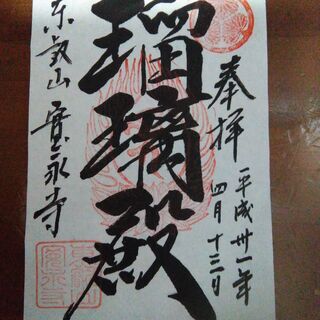 奉拝
平成卅一年
四月十三日
瑠璃殿
東叡山 寛永寺